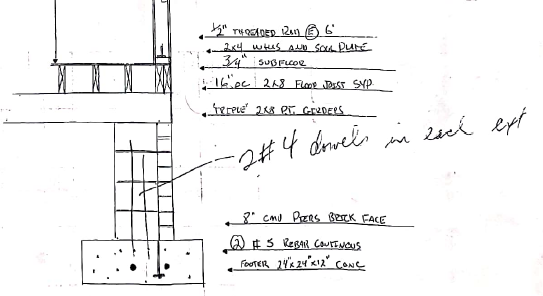 1/2" THREADED ROD @ 6'
2x4 WALLS AND SOLE PLATE
3/4" SUBFLOOR
16" OC 2x8 FLOOR JOIST SYP
'TRIPLE' 2x8 P.T. GIRDERS
2 #4 dowels in each ext
8" CMU PIERS BRICK FACE
(2) #5 REBAR CONTINOUS
FOOTER 24"x24"x12" CONC